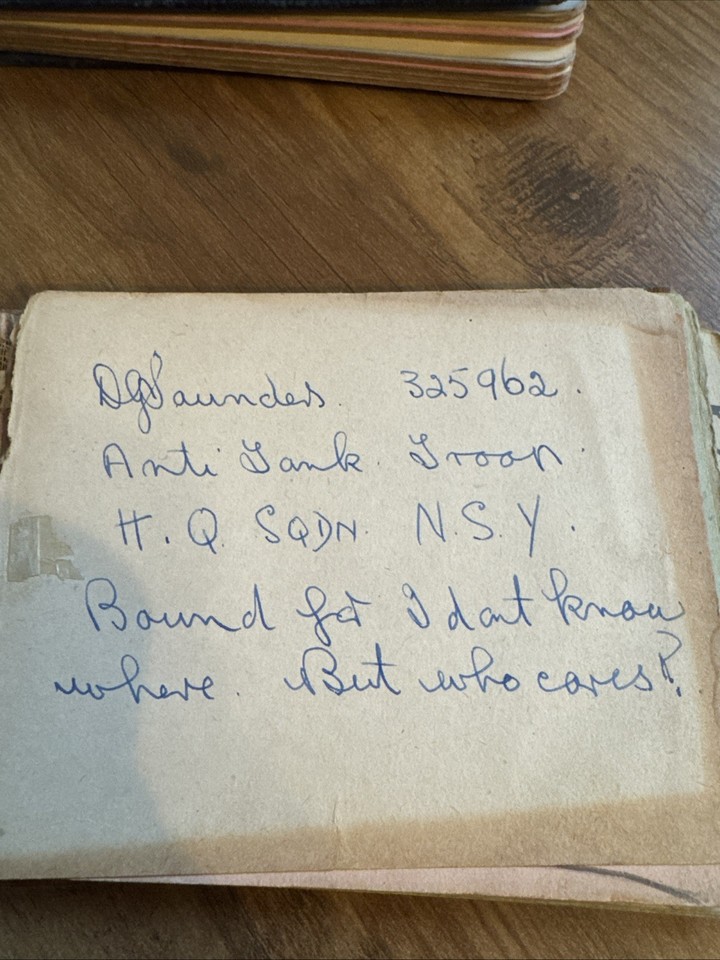 DGSaunders. 325962.
Anti Tank Troop
H.Q. SQDN. N.S.Y.
Bound for I dont know
where. But who cares?